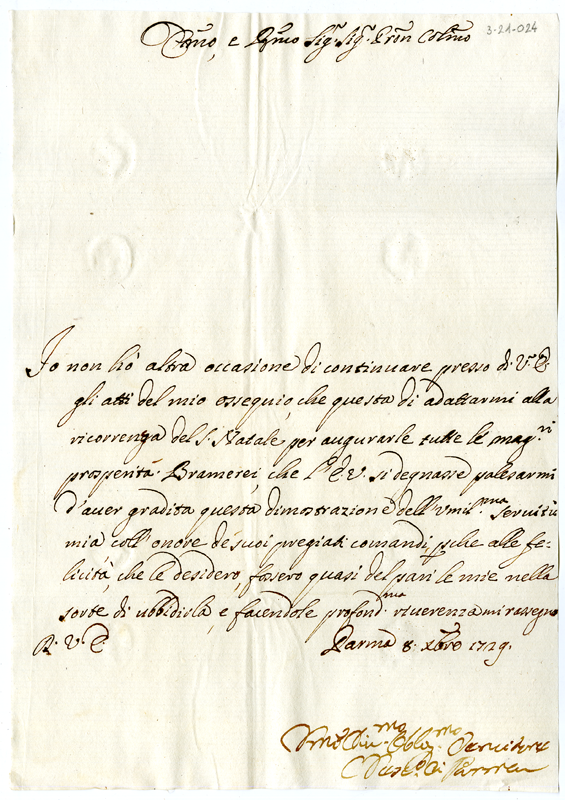 Emo, e Rmo Sig.r Sig.r Pron Colmo
3-21-024
Io non hò altra occasione di continuare presso di V.E.
gli atti del mio ossequio, che questa di adattarmi alla
ricorrenza del S. Natale, per augurarle tutte le mag.ri
prosperità. Bramerei, che l'E.V. si degnasse palesarmi
d'aver gradita questa dimostrazione dell'Vmil.ma servitù
mia coll'onore de suoi pregiati comandi, pche alle fe-
licità, che le desidero, fossero quasi del pari le mie nella
sorte di ubbidirla, e facendole profond.ma riverenza mi rassegno
D. V. E.
Parma 8. Xbre 1729.
Vmo Div.mo Oblig.mo Servitore
di Parma